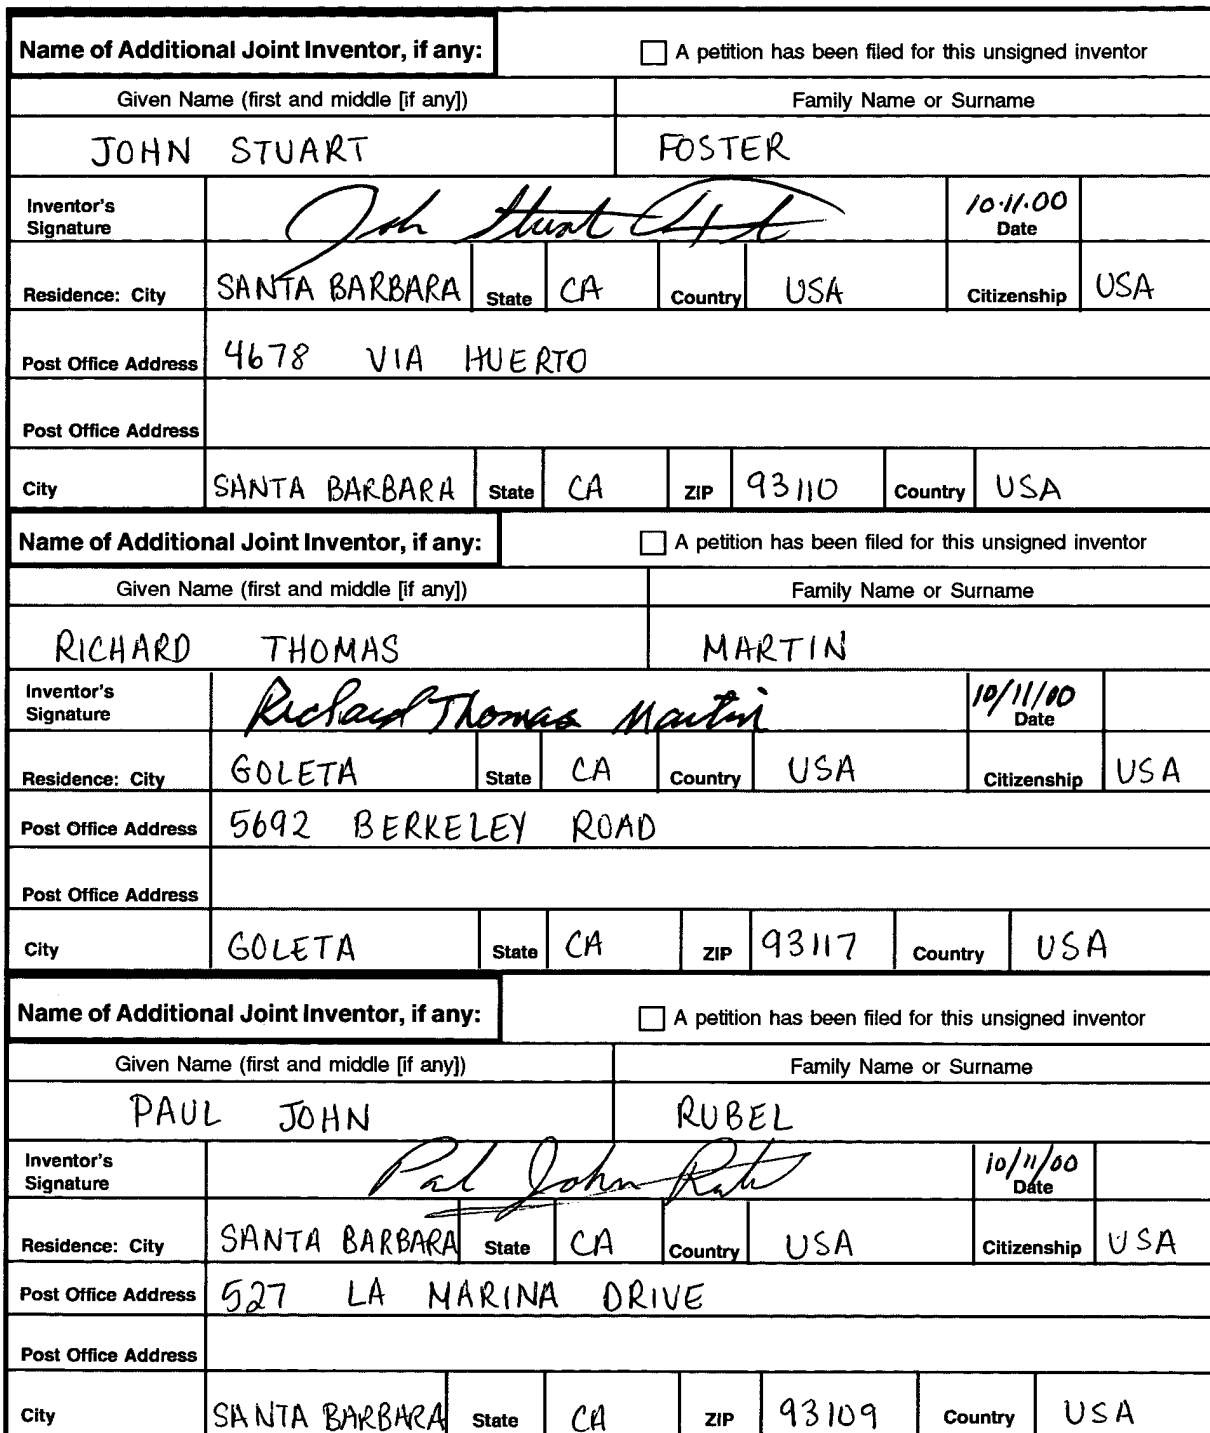 Name of Additional Joint Inventor, if any: A petition has been filed for this unsigned inventor
Given Name (first and middle [if any]) Family Name or Surname
JOHN STUART FOSTER
Inventor's Signature John Stuart 10.11.00 Date
Residence: City SANTA BARBARA State CA Country USA Citizenship USA
Post Office Address 4678 VIA HUERTO
Post Office Address
City SANTA BARBARA State CA ZIP 93110 Country USA
Name of Additional Joint Inventor, if any: A petition has been filed for this unsigned inventor
Given Name (first and middle [if any]) Family Name or Surname
RICHARD THOMAS MARTIN
Inventor's Signature Richard Thomas Martin 10/11/00 Date
Residence: City GOLETA State CA Country USA Citizenship USA
Post Office Address 5692 BERKELEY ROAD
Post Office Address
City GOLETA State CA ZIP 93117 Country USA
Name of Additional Joint Inventor, if any: A petition has been filed for this unsigned inventor
Given Name (first and middle [if any]) Family Name or Surname
PAUL JOHN RUBEL
Inventor's Signature Paul John 10/11/00 Date
Residence: City SANTA BARBARA State CA Country USA Citizenship USA
Post Office Address 527 LA MARINA DRIVE
Post Office Address
City SANTA BARBARA State CA ZIP 93109 Country USA